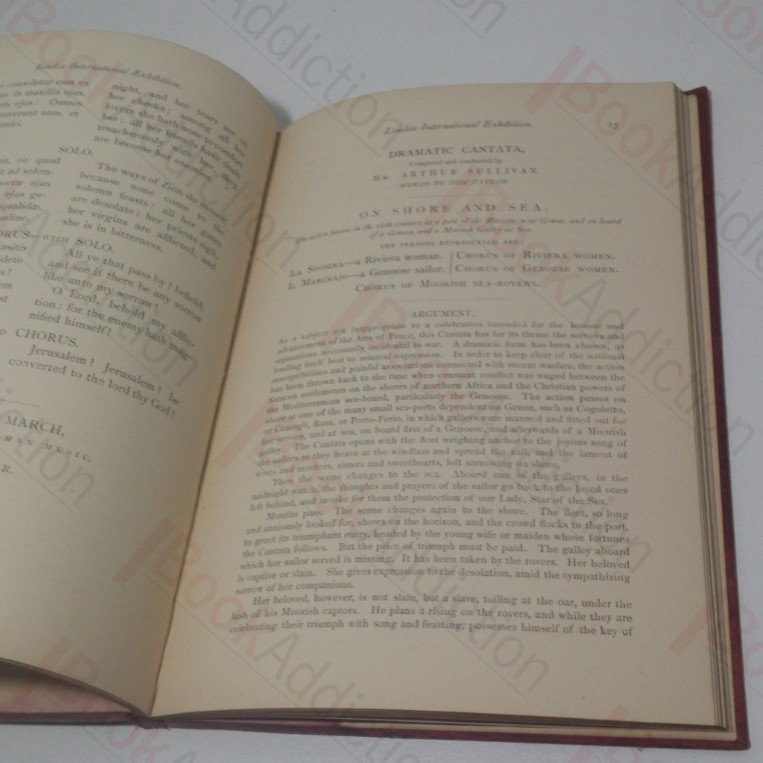 London International Exhibition.
consoletur eam ex
is in maxillis ejus
ejus: Omnes
reverunt eam, et
imici.
night, and her tears are on
her cheeks: among all her
lovers she hath none to comfort
her: all her friends have dealt
treacherously with her, they
are become her enemies.
SOLO.
eo quod
ad solem-
ejus
ejus ge-
The ways of Zion do mourn,
because none come to the
solemn feasts: all her gates
are desolate; her priests sigh,
her virgins are afflicted, and
she is in bitterness.
CHORUS—WITH SOLO.
All ye that pass by! behold,
and see if there be any sorrow
like unto my sorrow!
O Lord, behold my afflic-
tion: for the enemy hath mag-
nified himself!
CHORUS.
Jerusalem! Jerusalem! be
converted to the lord thy God!
MARCH,
MAN MUSIC,
R.
London International Exhibition. 15
DRAMATIC CANTATA,
Composed and conducted by
MR. ARTHUR SULLIVAN
WORDS BY TOM TAYLOR.
ON SHORE AND SEA.
The action passes in the 16th century, at a port of the Riviera, near Genoa, and on board
of a Genoese and a Moorish Galley at Sea.
THE PERSONS REPRESENTED ARE:
LA SPOSINA—a Riviera woman. | CHORUS OF RIVIERA WOMEN.
IL MARINAJO—a Genoese sailor. | CHORUS OF GENOESE WOMEN.
CHORUS OF MOORISH SEA-ROVERS.
ARGUMENT.
As a subject not inappropriate to a celebration intended for the honour and
advancement of the Arts of Peace, this Cantata has for its theme the sorrows and
separations necessarily incident to war. A dramatic form has been chosen, as
lending itself best to musical expression. In order to keep clear of the national
susceptibilities and painful associations connected with recent warfare, the action
has been thrown back to the time when constant conflict was waged between the
Saracen settlements on the shores of northern Africa and the Christian powers of
the Mediterranean sea-board, particularly the Genoese. The action passes on
shore at one of the many small sea-ports dependent on Genoa, such as Cogoletto,
or Camogli, Ruta, or Porto-Ferio, in which galleys were manned and fitted out for
her service, and at sea, on board first of a Genoese, and afterwards of a Moorish
galley. The Cantata opens with the fleet weighing anchor to the joyous song of
the sailors as they heave at the windlass and spread the sail, and the lament of
wives and mothers, sisters and sweethearts, left sorrowing on shore.
Then the scene changes to the sea. Aboard one of the galleys, in the
midnight watch, the thoughts and prayers of the sailor go back to the loved ones
left behind, and invoke for them the protection of our Lady, Star of the Sea.
Months pass. The scene changes again to the shore. The fleet, so long
and anxiously looked for, shows on the horizon, and the crowd flocks to the port,
to greet its triumphant entry, headed by the young wife or maiden whose fortunes
the Cantata follows. But the price of triumph must be paid. The galley aboard
which her sailor served is missing. It has been taken by the rovers. Her beloved
is captive or slain. She gives expression to the desolation, amid the sympathizing
sorrow of her companions.
Her beloved, however, is not slain, but a slave, toiling at the oar, under the
lash of his Moorish captors. He plans a rising on the rovers, and while they are
celebrating their triumph with song and feasting, possesses himself of the key of